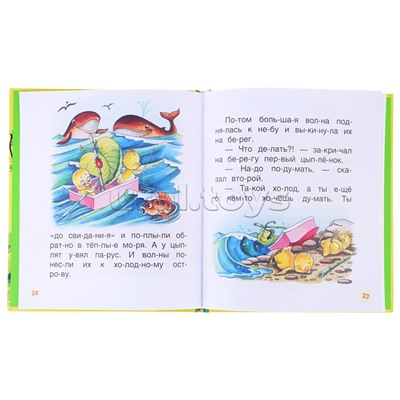 «до сви-да-ни-я» и по-плы-ли об-
рат-но в тёп-лы-е мо-ря. А у цып-
лят у-вял па-рус. И вол-ны по-
нес-ли их к хо-лод-но-му ост-
ро-ву.
26
По-том боль-ша-я вол-на под-
ня-лась к не-бу и вы-ки-ну-ла их
на бе-рег.
— Что де-лать?! — за-кри-чал
на бе-ре-гу пер-вый цып-лё-нок.
— На-до по-ду-мать, — ска-
зал вто-рой.
— Та-кой хо-лод, а ты е-щё
о чём-то хо-чешь ду-мать. Ты
27